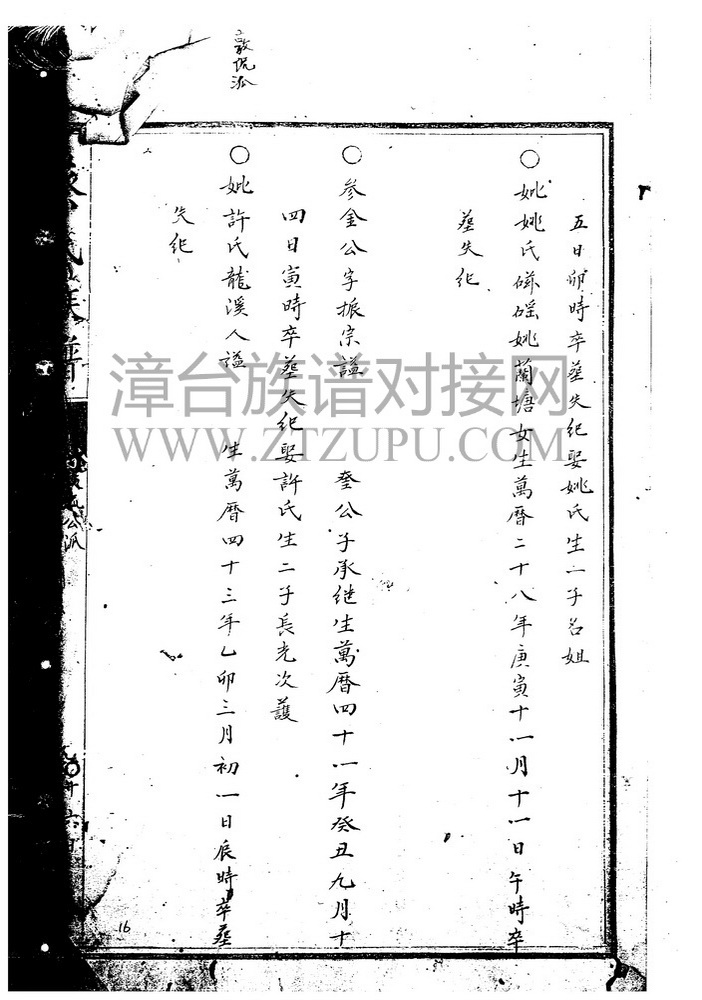 敦倪派
五日卯時卒葬失紀娶姚氏生一子名姐
○妣姚氏𥑮磘姚蘭塘女生萬曆二十八年庚寅十一月十一日午時卒
葬失紀
○参金公字振宗謚 奎公子承继生萬曆四十一年癸丑九月十
四日寅時卒葬失紀娶許氏生二子長光次護
○妣許氏龍溪人謚 生萬曆四十三年乙卯三月初一日辰時卒葬
失紀
氏族譜
公派
十六
16
漳台族谱对接网
WWW.ZTZUPU.COM